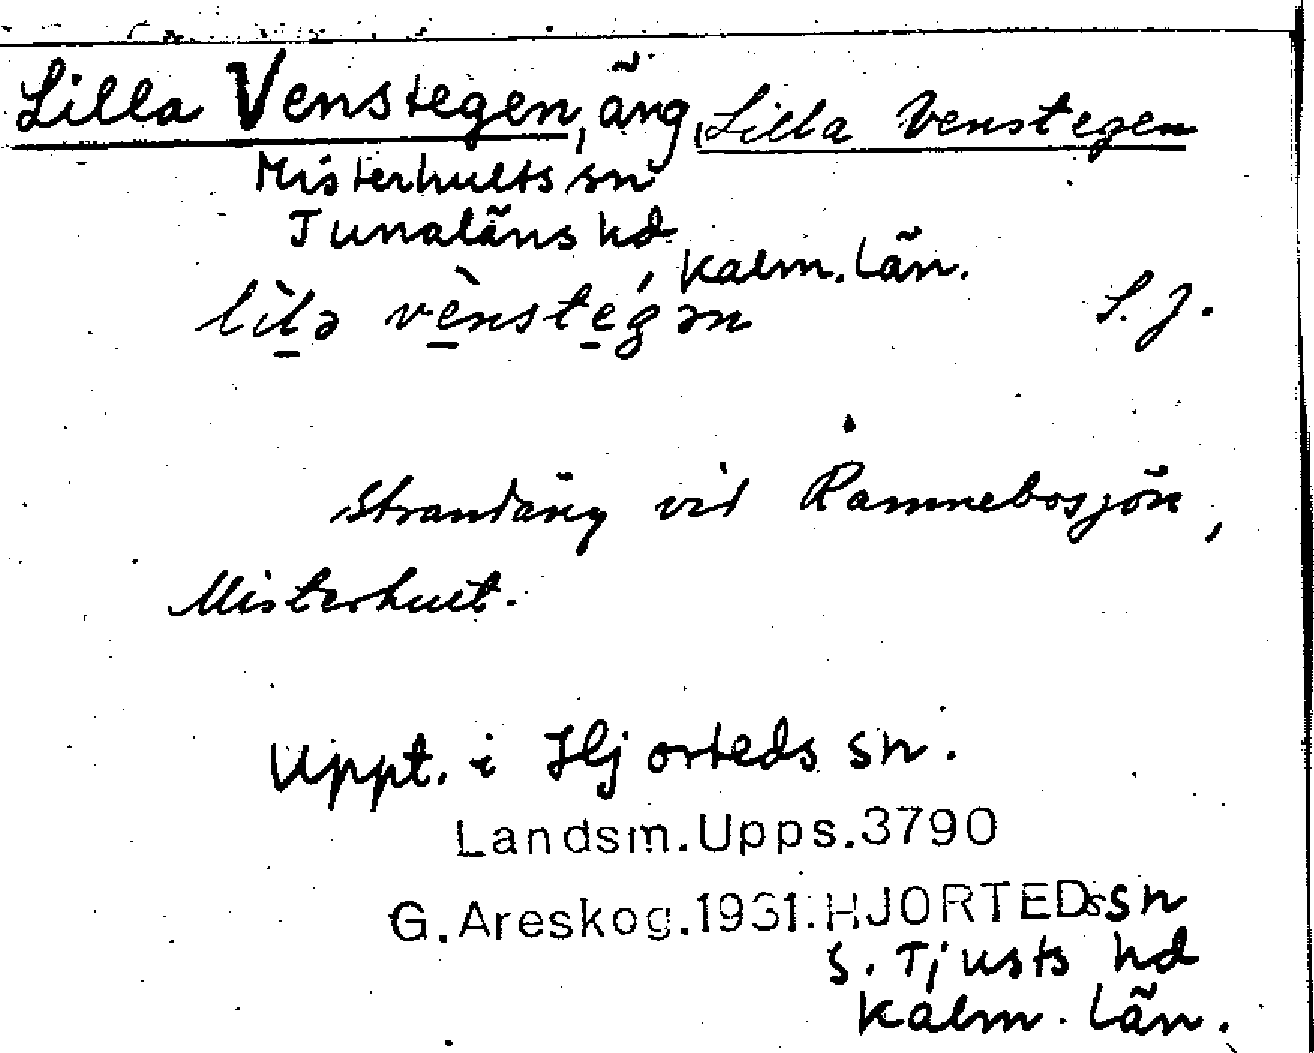 Lilla Venstegen, äng, Lilla Venstegen
Misterhults sn
Tunaläns hd, Kalm. län.
lìlə vènstegən S.J.
Strandäng vid Ramnebosjön,
Misterhult.
Uppt. i Hjorteds sn.
Landsm.Upps.3790
G.Areskog.1931.HJORTEDs sn
S. Tjusts hd
Kalm. län.